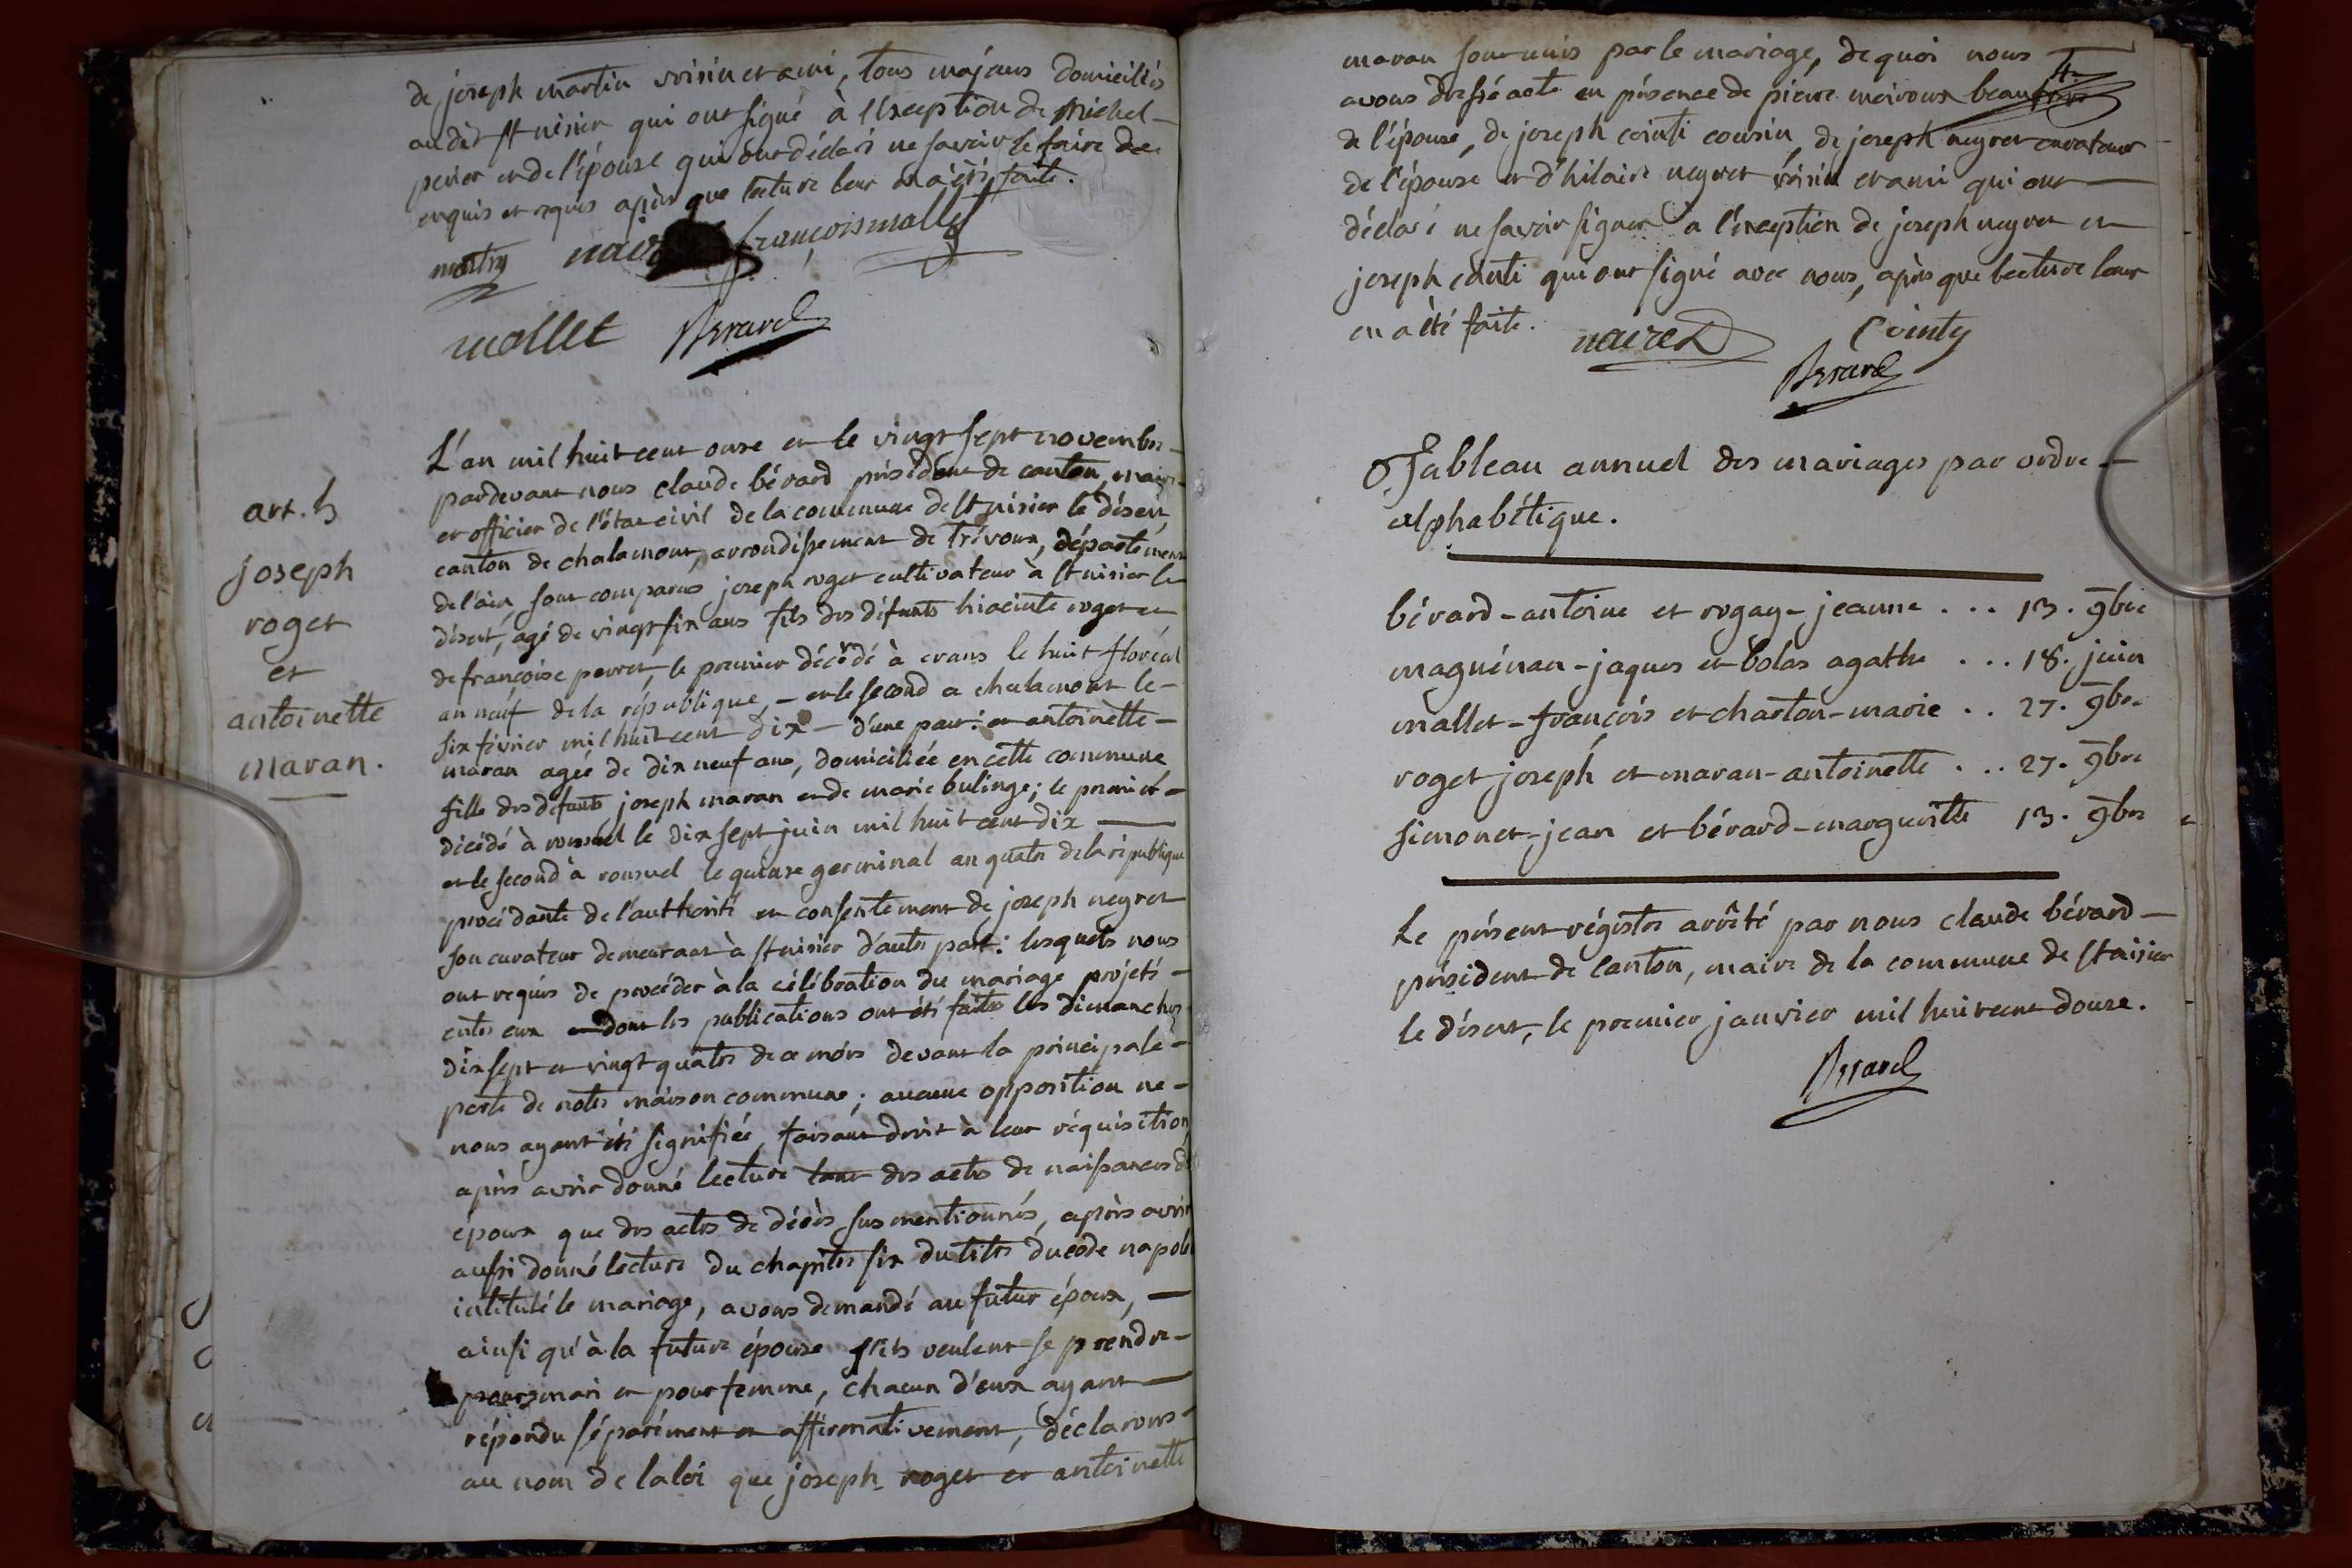 de joseph martin voisin et ami, tous majeurs domiciliés
audit st nisier qui ont signé à l'exception de Michel
perier et de l'épouse qui ont déclaré ne savoir le faire de ce
enquis et requis après que lecture leur en a été faite.
françois mallet
mallet Berard
art. 5
joseph
roget
et
antoinette
maran.
L'an mil huit cent onze et le vingt sept novembre
pardevant nous claude bérard président de canton, maire
et officier de l'état civil de la commune de st nisier le désert,
canton de chalamont, arrondissement de trévoux, département
de l'ain, sont comparus joseph roget cultivateur à st nisier le
désert, agé de vingt six ans fils des défunts hiacinte roget et
de françoise perret, le premier décédé à crans le huit floréal
an neuf de la république, - et le second a chalamont le -
six février mil huit cent dix - d'une part: et antoinette -
maran agée de dix neuf ans, domiciliée en cette commune
fille des défunts joseph maran et de marie bulinge; le premier -
décédé à le dix sept juin mil huit cent dix
et le second à le quinze germinal an quatre de la république
procédante de l'authorité et consentement de joseph neyret
son curateur demeurant à st nisier d'autre part: lesquels nous
ont requis de procéder à la célébration du mariage projeté -
entre eux et dont les publications ont été faites les dimanches
dix sept et vingt quatre de ce mois devant la principale -
porte de notre maison commune; aucune opposition ne -
nous ayant été signifiée, faisant droit à leur réquisition,
après avoir donné lecture tant des actes de naissances d
époux que des actes de décès sus mentionnés, après avoir
aussi donné lecture du chapitre six du titre du code napol
intitulé le mariage, avons demandé au futur époux, -
ainsi qu'à la future épouse s'ils veulent se prendre -
pour mari et pour femme, chacun d'eux ayant -
répondu séparément et affirmativement, déclarons -
au nom de la loi que joseph roget et antoinette
maran sont unis par le mariage, de quoi nous
avons dressé acte en présence de pierre beaufrere
de l'épouse, de joseph cointi cousin, de joseph neyret curateur
de l'épouse et d'hilaire neyret voisin et ami qui ont -
déclaré ne savoir signer a l'éxception de joseph neyret et
joseph cointi qui ont signé avec nous, après que lecture leur
en a été faite.
neiret Cointy
Berard
Tableau annuel des mariages par ordre -
alphabétique.
bérard - antoine et rogay - jeanne ... 13. 9bre
maguénan - jaques et bolas agathe ... 18. juin
mallet - françois et charton - marie .. 27. 9bre
roget joseph et maran - antoinette ... 27. 9bre
simonet - jean et bérard - marguerite 13. 9bre
Le présent régistre arrêté par nous claude bérard -
président de canton, maire de la commune de st nisier
le désert, le premier janvier mil huit cent douze.
Berard